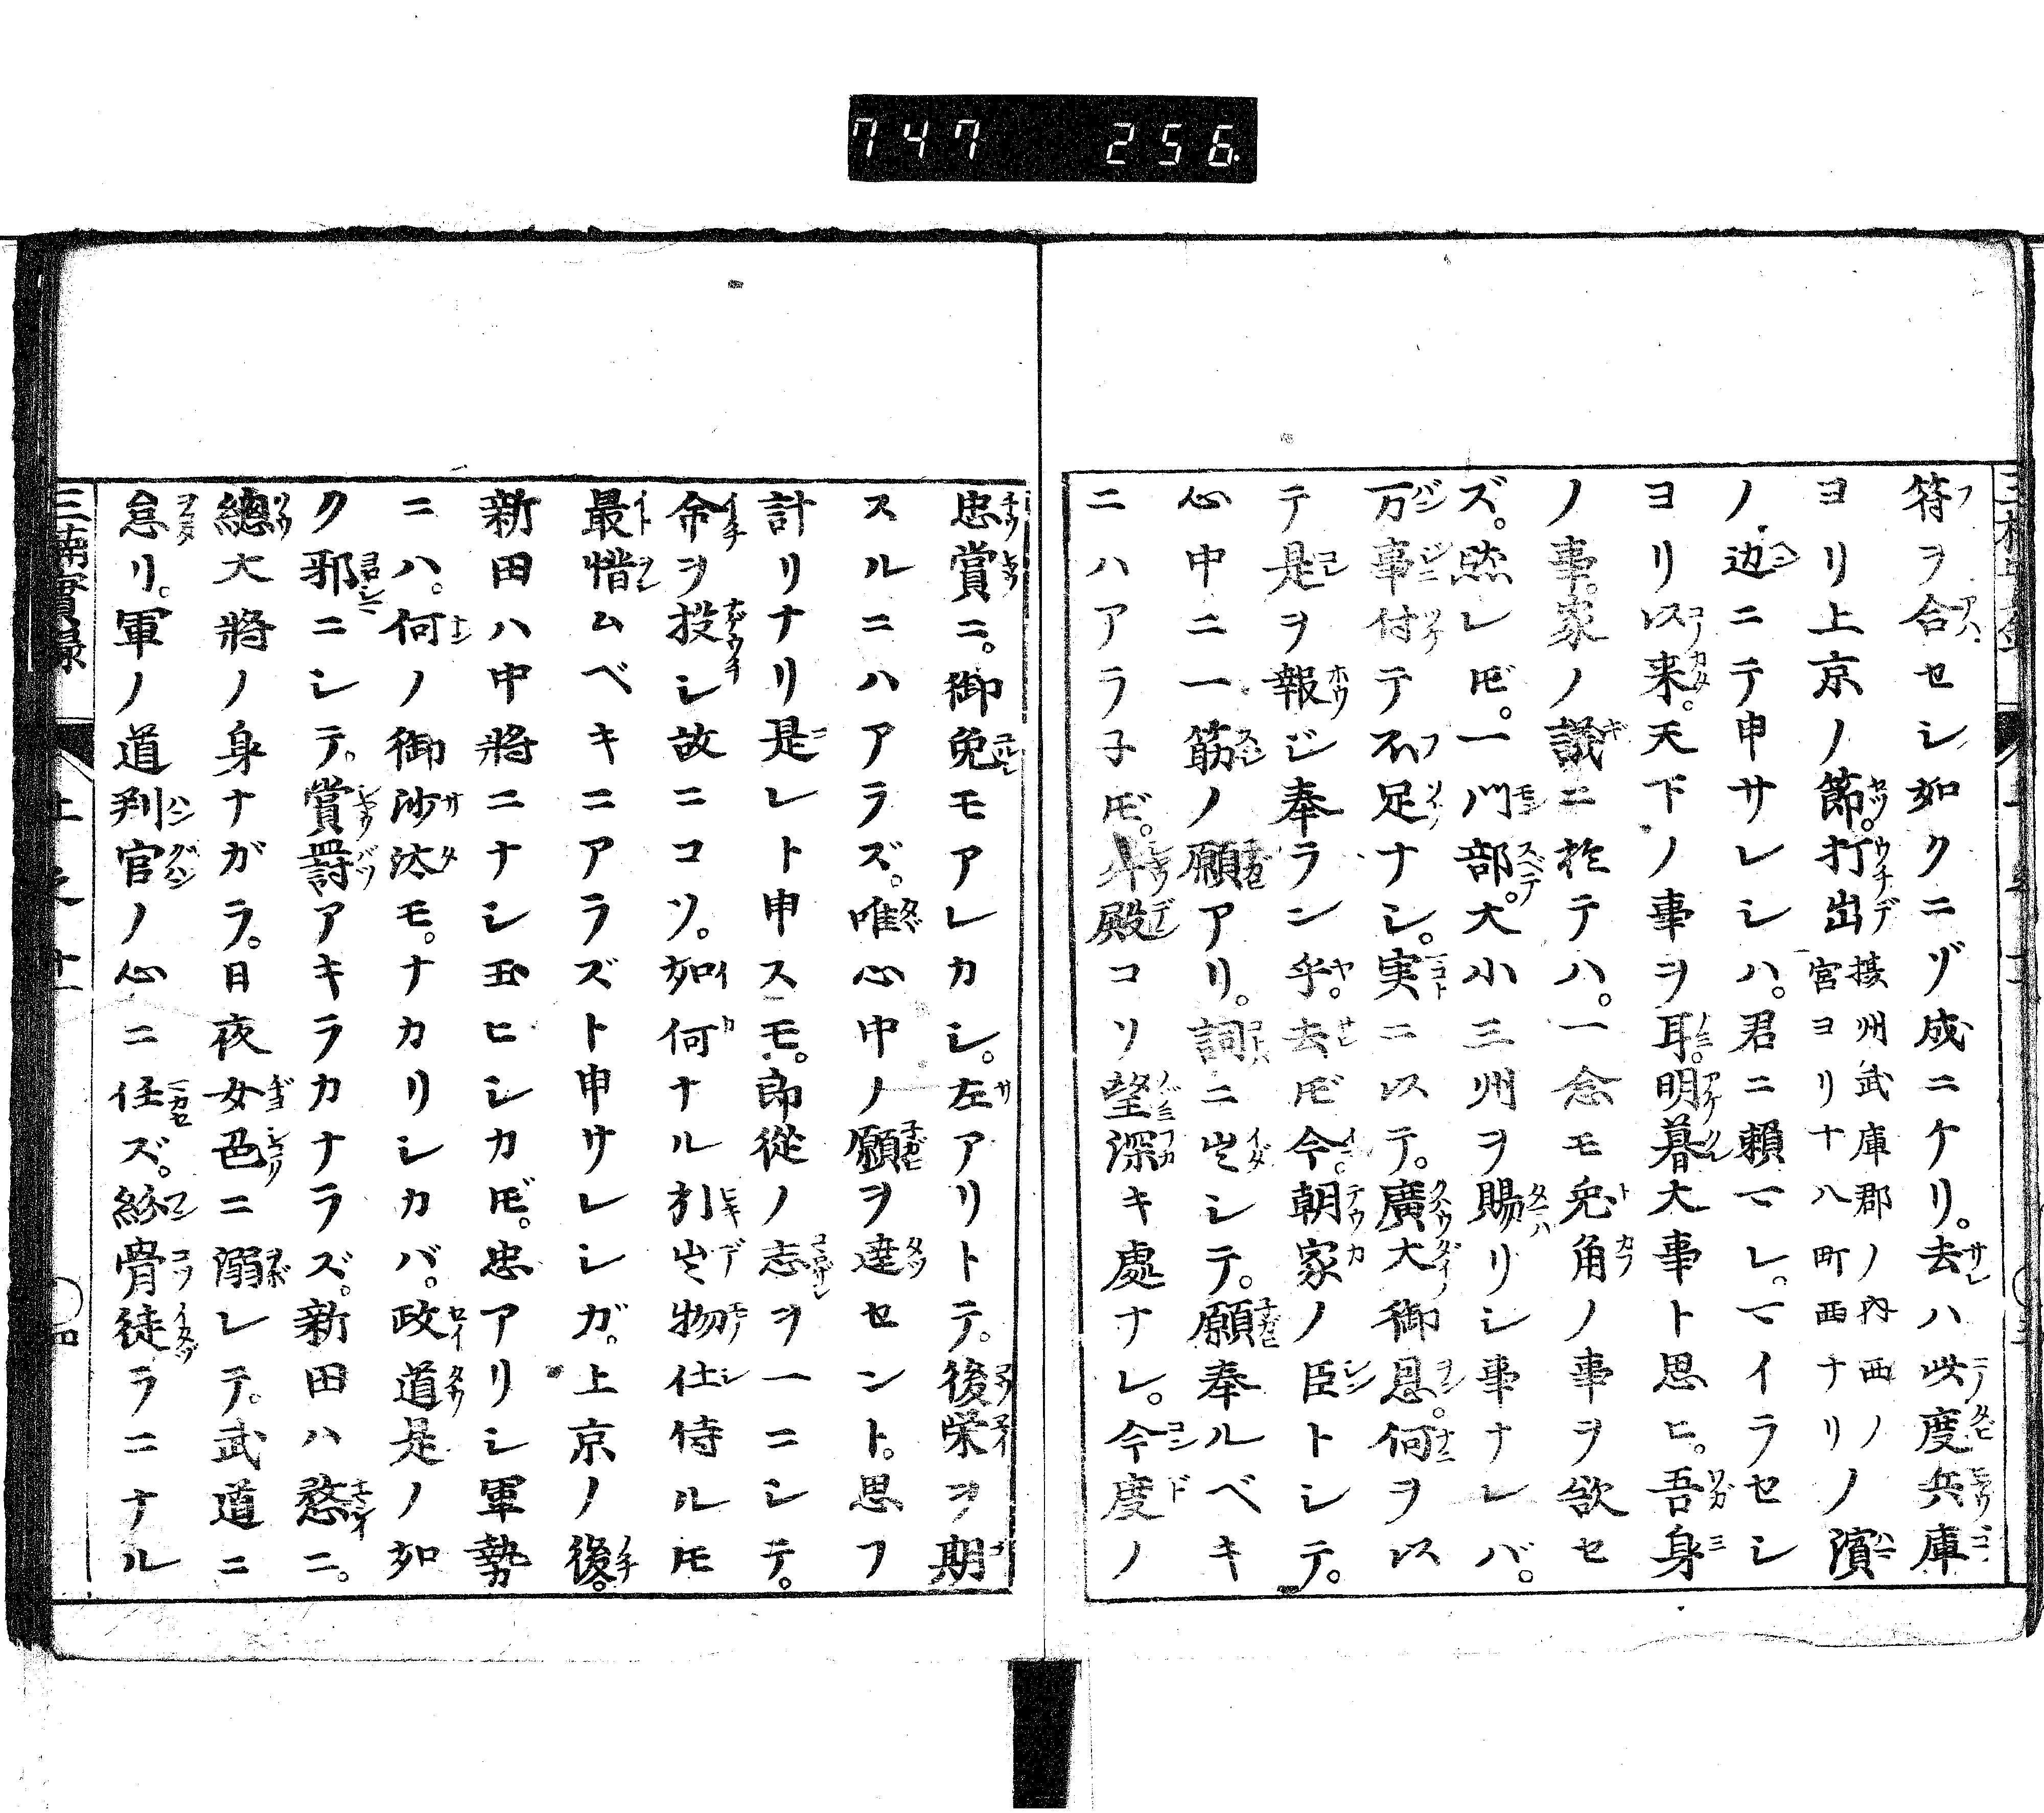 747 256
符ヲ合セシ如クニゾ成ニケリ。去ハ此度兵庫
ヨリ上京ノ節。打出
摂州武庫郡ノ内西ノ
宮ヨリ十八町西ナリ
ノ濱
ノ辺ニテ申サレシハ。君ニ頼マレ。マイラセシ
ヨリ以来。天下ノ事ヲ耳。明暮大事ト思ヒ。吾身
ノ事。家ノ議ニ於テハ。一念モ兎角ノ事ヲ欲セ
ズ。然レ𪜈。一門部。大小三州ヲ賜リシ事ナレバ。
万事付テ不足ナシ。実ニ以テ。廣大御恩。何ヲ以
テ是ヲ報ジ奉ラン乎。去𪜈今朝家ノ臣トシテ。
心中ニ一筋ノ願アリ。詞ニ出シテ。願奉ルベキ
ニハアラ子𪜈。殿コソ望深キ處ナレ。今度ノ
忠賞ニ。御免モアレカシ。左アリトテ。後栄ヲ期
スルニハアラズ。唯心中ノ願ヲ達セント。思フ
計リナリ是レト申スモ。郎從ノ志ヲ一ニシテ。
命ヲ投シ故ニコソ。如何ナル引出物仕侍ルモ
最惜ムベキニアラズト申サレシガ。上京ノ後。
新田ハ中將ニナシ玉ヒシカ𪜈。忠アリシ軍勢
ニハ。何ノ御沙汰モ。ナカリシカバ。政道是ノ如
ク邪ニシテ。賞罰アキラカナラズ。新田ハ愁ニ。
總大將ノ身ナガラ。日夜女色ニ溺レテ。武道ニ
怠リ。軍ノ道判官ノ心ニ任ズ。紛骨徒ラニナル
三楠實録 上之十一 四